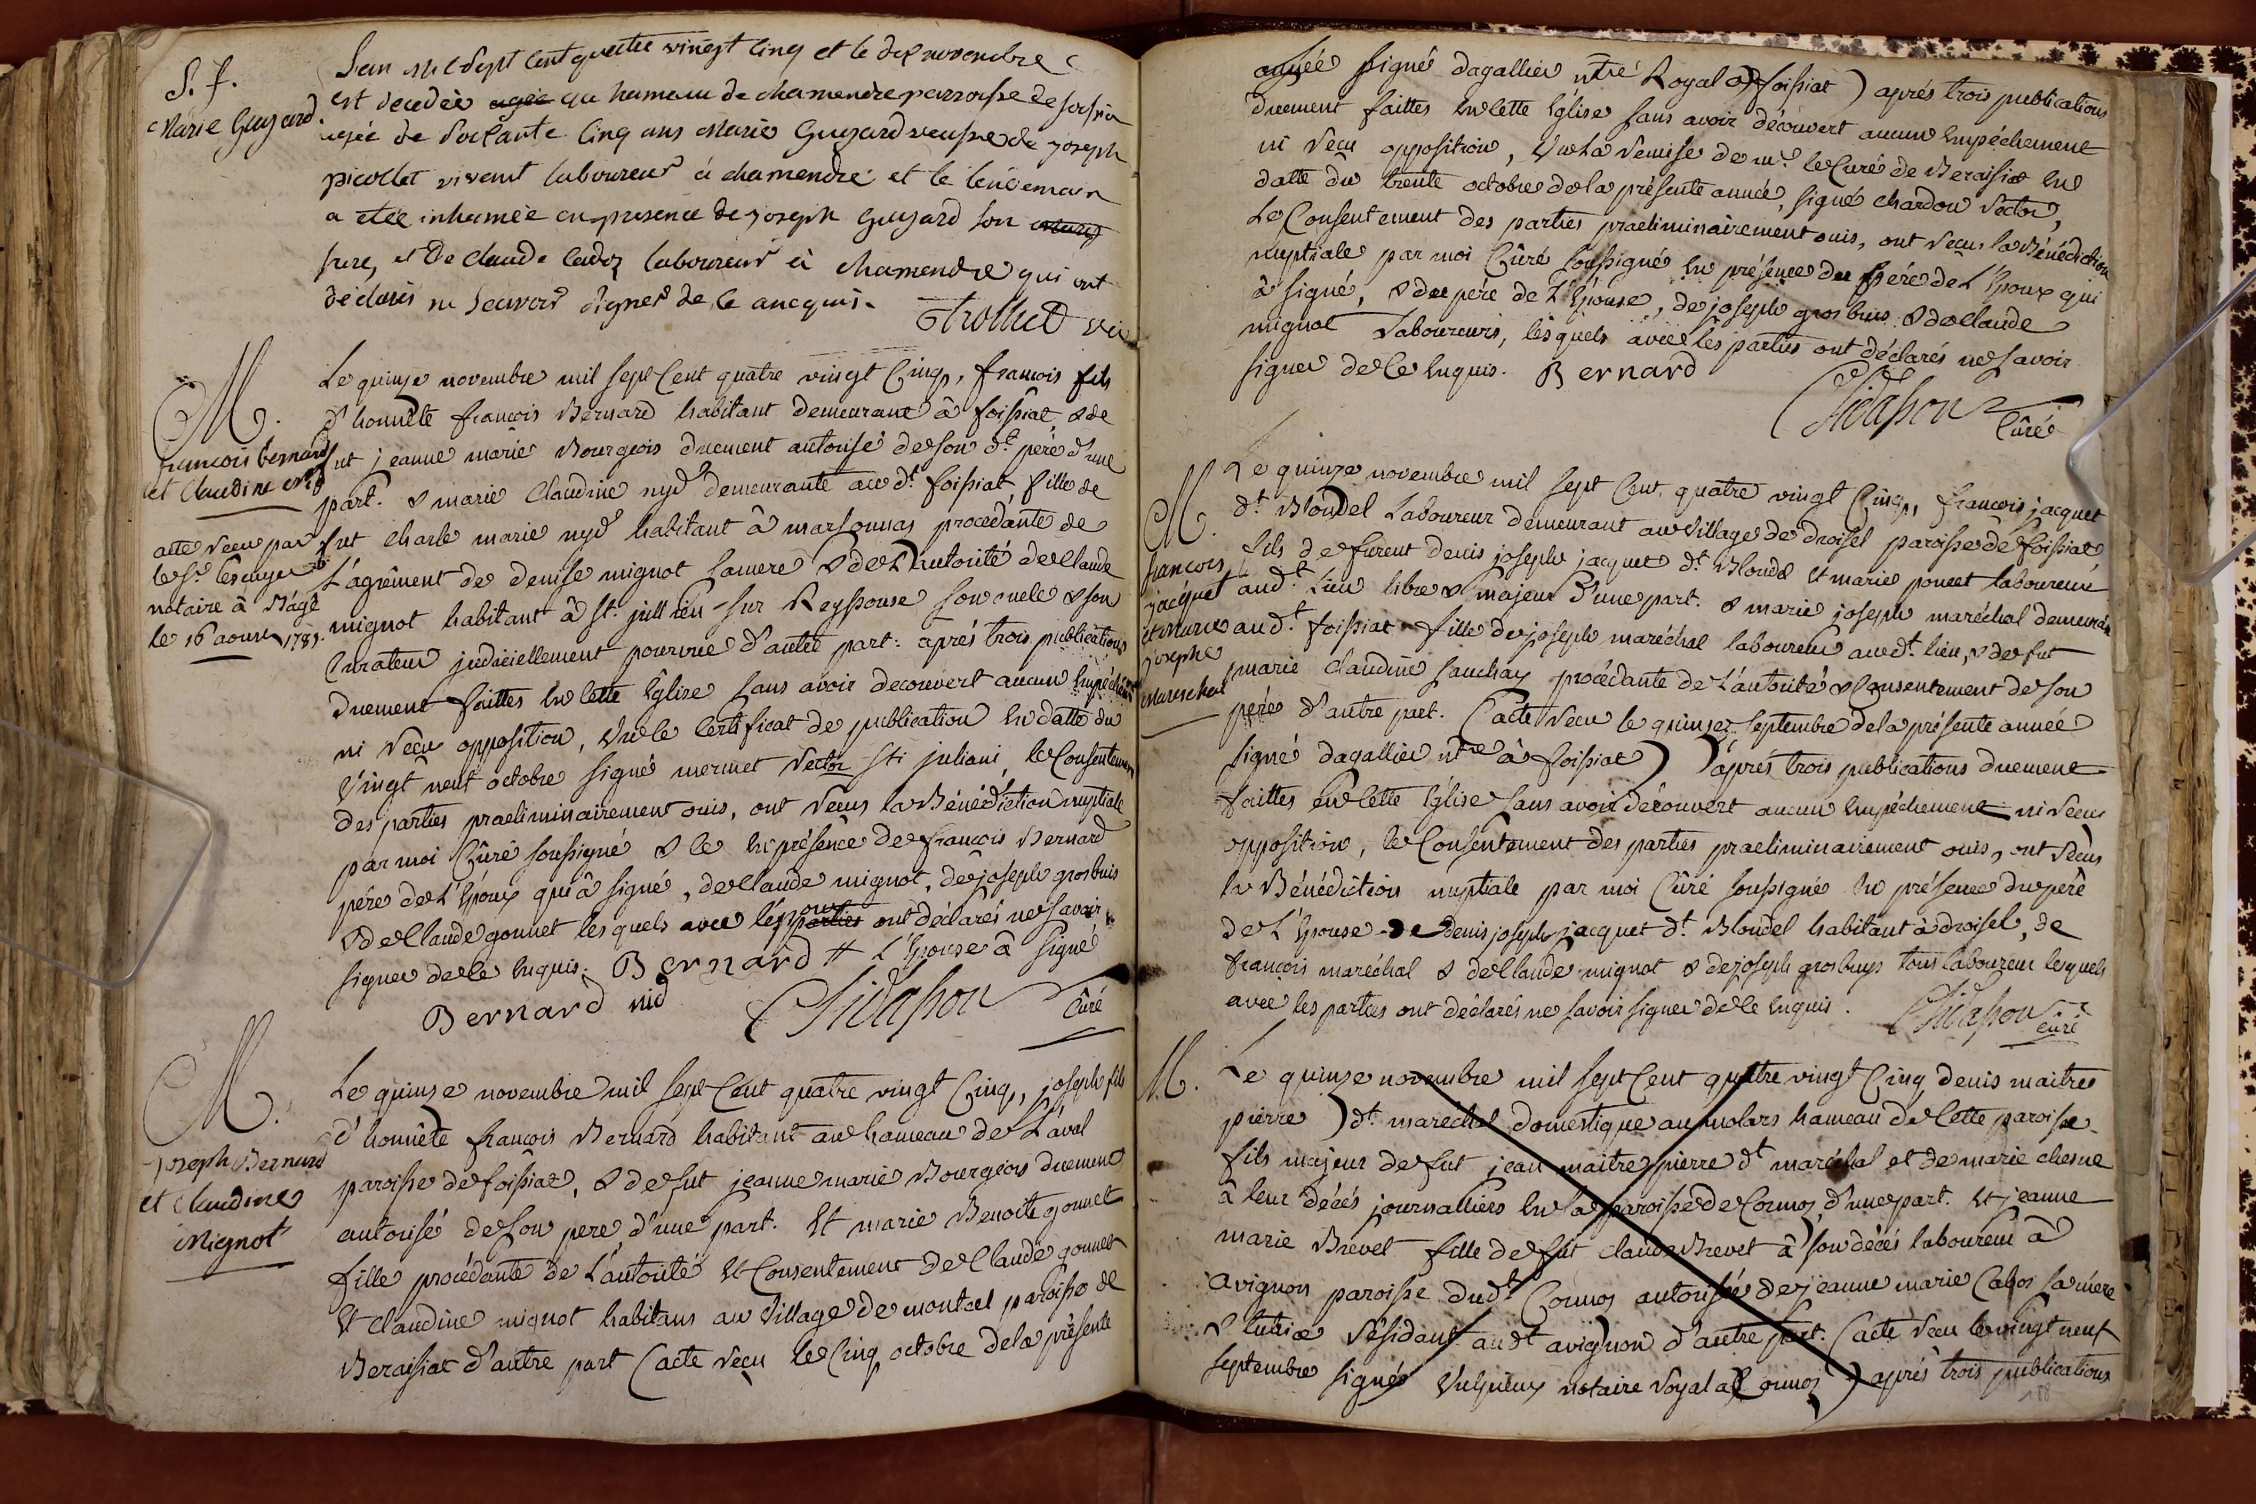 S. f.
Marie Guyard.
Lan mil sept cent quatre vingt cinq et le dix novembre
est decedée agée au hameau de chamendre parroisse de foisia
agée de soixante cinq ans Marie Guyard veufve de joseph
picollet vivent laboureur à chamendre et le lendemain
a etée inhumée en presence de joseph Guyard son
frere, et De claude cadoz laboureur à chamendre qui ont
déclarés ne scavoir signer de ce ancquis.
Trollict vic
M.
francois bernard
et Claudine Nid
acte recu par
le Sr. lescuyer
notaire à Bâgé
le 16 aoust 1785.
Le quinze novembre mil sept Cent quatre vingt Cinq, françois fils
d'honnête françois Bernard habitant demeurant â foissiat, & de
fut jeanne marie Bourgeois duement autorisé de son dt. père d'une
part. & marie Claudine nyd demeurante audt. foissiat, fille de
fut Charle marie nyd habitant â marsonnas procedante de
L'agrêment de denise mignot sa mere & de L'autorité de Claude
mignot habitant â St. jullien-sur Reyssouse son oncle & son
Curateur judiciellement pourvue d'autre part: après trois publications
duement faittes en Cette Église sans avoir decouvert aucun Empéchem
ni reçu opposition, Vu le Certificat de publication en datte du
Vingt neuf octobre signé mermet Rector Sti juliani, le Consentement
des parties praeliminairement ouis, ont recus la Bénédiction nuptiale
par moi Cûré soussigné & ce en présence de françois Bernard
pére de L'Époux qui â signé, de Claude mignot, de joseph grosbuis
& de Claude gonnet les quels avec l'époux parties ont déclarés ne savoir
signer de ce enquis. Bernard # L'Épouse â signé
Bernard nid
Chidasson Cûré
M.
joseph Bernard
et Claudine
Mignot
Le quinze novembre mil sept Cent quatre vingt Cinq, joseph fils
d'honnête françois Bernard habitant au hameau de L'aval
paroisse de foissiat, & de fut jeanne marie Bourgeois duement
autorisé de son pere d'une part. Et marie Benoite gonnet
fille procédante de L'autorité Et Consentement de Claude gonnet
Et Claudine mignot habitans au Village de montcel paroisse de
Beraisiat d'autre part (acte reçu le Cinq octobre de la présente
année signé dagallier ntre Royal â foissiat) aprés trois publications
duement faittes en Cette Église sans avoir découvert aucun Empéchement
ni recu opposition, Vu la remise de mr. le Curé de Beraisia en
datte du trente octobre de la présente année, signé chardon rector,
Le Consentement des parties praeliminairement ouis, ont recus la Bénédiction
nuptiale par moi Cûré soussigné en présence du pére de L'Époux qui
â signé, & du pére de L'Épouse, de joseph grosbuis & de Claude
mignot Laboureurs, lesquels avec les parties ont déclarés ne savoir
signer de ce enquis. Bernard
Chidasson Cûré
M.
françois
jacquet
et marie
josephe
Mareschal
Le quinze novembre mil sept Cent quatre vingt Cinq, françois jacquet
dt. Blondel Laboureur demeurant au Village de droisel paroisse de foissiat,
fils de furent denis joseph jacquet dt. Blondel Et marie poncet laboureurs
audt. Lieu libre & majeur d'une part. & marie joseph maréchal demeurant
audt. foissiat fille de joseph maréchal laboureur audt. lieu, & de fut
marie Claudine sauchay procédante de L'autorité & Consentement de son
pére d'autre part. (acte recu le quinze septembre de la présente année
signé dagallier ntre â foissiat) aprés trois publications duement
faittes en Cette Église sans avoir découvert aucun Empéchement ni recus
opposition, le Consentement des parties praeliminairement ouis, ont recus
la Bénédiction nuptiale par moi Cûré soussigné en présence du pére
de L'Épouse de denis joseph jacquet dt. Blondel habitant à droisel, de
françois maréchal & de Claude mignot & de joseph grosbuys tous laboureur lesquels
avec les parties ont déclarés ne savoir signer de ce enquis.
Chidasson Cûré
M.
Le quinze novembre mil sept Cent quattre vingt Cinq denis maitre
pierre) dt. maréchal domestique au molars hameau de Cette paroisse
fils majeur de fut jean maitre pierre dt maréchal et de marie chesne
â leur décés journalliers en la paroisse de Cormoz d'une part. Et jeanne
marie Brevet fille de fut Claude Brevet â son décés laboureur â
avignon paroisse dudt. Cormoz autorisée de jeanne marie Caboz sa mère
& tutrice résidant audt avignon d'autre part. (acte recu le vingt neuf
septembre signé notaire royal â Cormoz) aprés trois publications
188